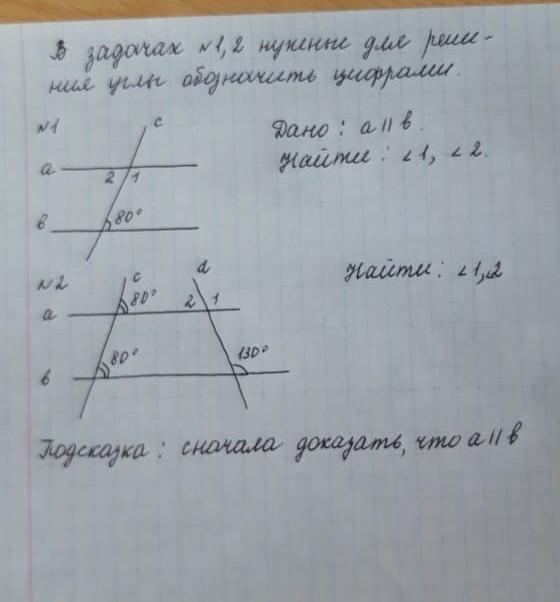 В задачах №1, 2 нужные для реше-
ния углы обозначить цифрами.
№1
c
Дано: a || b.
Найти: ∠1, ∠2.
a
2 1
b
80°
№2
c
d
Найти: ∠1,∠2
a
80°
2 1
b
80°
130°
Подсказка: сначала доказать, что a || b